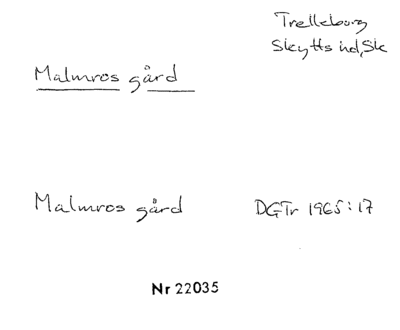 Trelleborg
Skytts hd, Sk
Malmros gård
Malmros gård DGTr 1965:17
Nr 22035